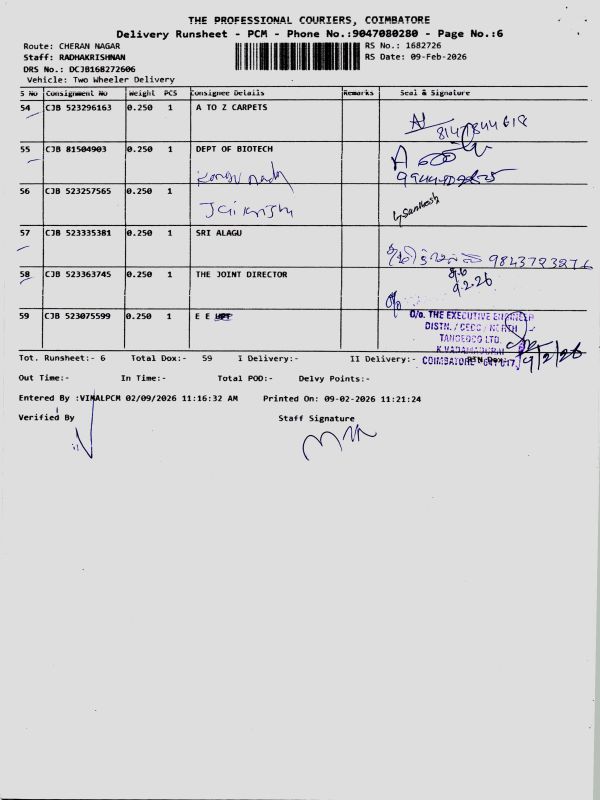 THE PROFESSIONAL COURIERS, COIMBATORE
Delivery Runsheet - PCM - Phone No.:9047080280 - Page No.:6
Route: CHERAN NAGAR
RS No.: 1682726
Staff: RADHAKRISHNAN
RS Date: 09-Feb-2026
DRS No.: DCJB168272606
Vehicle: Two Wheeler Delivery
S No Consignment No Weight PCS Consignee Details Remarks Seal & Signature
54 CJB 523296163 0.250 1 A TO Z CARPETS
8147844618
55 CJB 81504903 0.250 1 DEPT OF BIOTECH
56 CJB 523257565 0.250 1
Jai Krishi
Santhosh
57 CJB 523335381 0.250 1 SRI ALAGU
9843723276
58 CJB 523363745 0.250 1 THE JOINT DIRECTOR
9.2.26
59 CJB 523075599 0.250 1 E E
O/o. THE EXECUTIVE ENGINEER
DISTN. / CEDC / NORTH
TANGEDCO LTD.
K.VADAMADURAI
COIMBATORE - 641 017.
9/2/26
Tot. Runsheet:- 6 Total Dox:- 59 I Delivery:- II Delivery:-
Out Time:- In Time:- Total POD:- Delvy Points:-
Entered By :VIMALPCM 02/09/2026 11:16:32 AM Printed On: 09-02-2026 11:21:24
Verified By Staff Signature